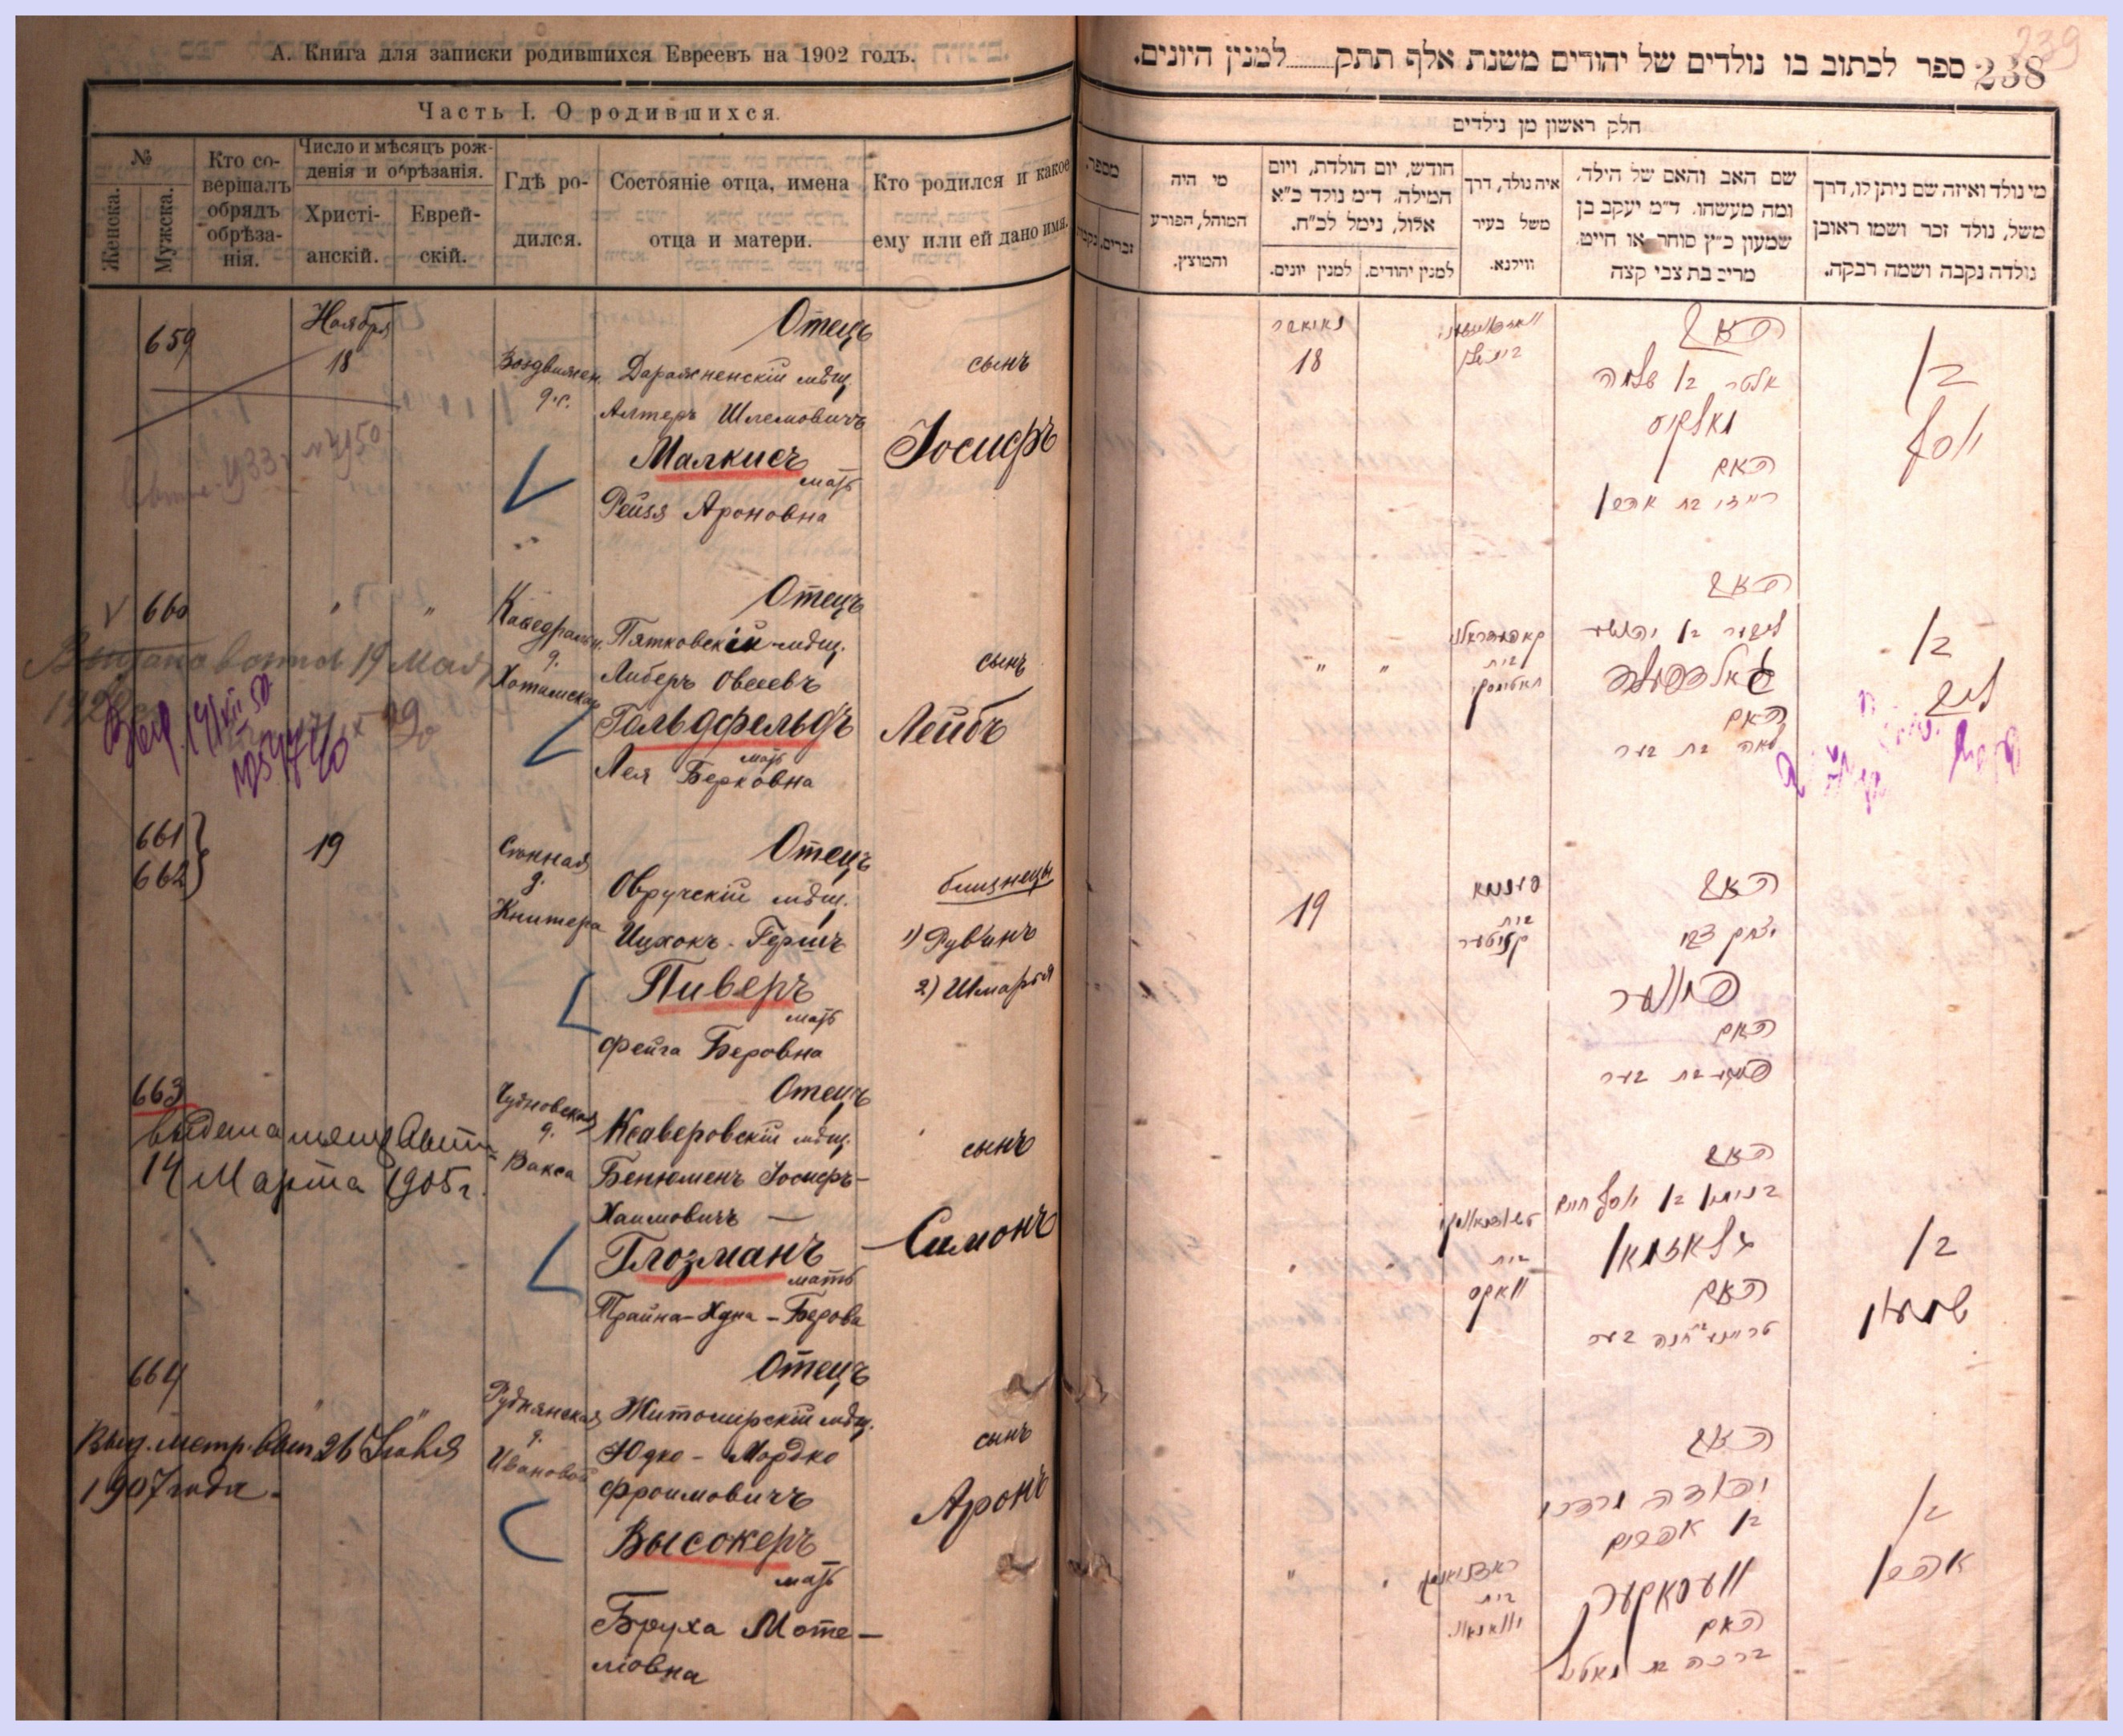 А. Книга для записки родившихся Евреевъ на 1902 годъ.
Часть I. О родившихся.
№
Женска.
Мужска.
Кто со-
вершалъ
обрядъ
обрѣза-
нія.
Число и мѣсяцъ рож-
денія и обрѣзанія.
Христі-
анскій.
Еврей-
скій.
Гдѣ ро-
дился.
Состояніе отца, имена
отца и матери.
Кто родился и какое
ему или ей дано имя.
659
Ноября
18
Воздвижен.
Отецъ
Даражненскій мѣщ.
Алтеръ Шлемовичъ
Малкисъ
мать
Рейзя Ароновна
сынъ
Іосифъ
660
" "
Кафедральн.
д.
Хотимская
Отецъ
Пятковскій мѣщ.
Либеръ Овсеевъ
Гольдфельдъ
мать
Лея Берковна
сынъ
Лейбъ
19 Мая
661
662
19
Сѣнная
д.
Книтера
Отецъ
Овручскій мѣщ.
Ицхокъ-Гершъ
Пиверъ
мать
Фейга Беровна
близнецы
1) Рувинъ
2) Шмарья
663
14 Марта 1905 г.
Чудновская
д.
Вакса
Отецъ
Ксаверовскій мѣщ.
Бенюменъ Іосифъ-
Хаимовичъ —
Глозманъ
мать
Трайна-Хдна-Берова
сынъ
Симонъ
664
Выд. метр. вып 26 Іюня
1907 года.
Руднянская
д.
Ивановой
Отецъ
Житомірскій мѣщ.
Юдко-Мордко
Фроимовичъ
Высокеръ
мать
Бруха Моте-
левна
сынъ
Аронъ
239
238
ספר לכתוב בו נולדים של יהודים משנת אלף תתק......למנין היונים.
חלק ראשון מן נולדים
מספר.
זכרים, נקבות
מי היה
המוהל, הפורע
והמוצץ.
חודש, יום הולדת, ויום
המילה. ד״מ נולד כ״א
אלול, נימל לכ״ח.
למנין יונים.
למנין יהודים.
איה נולד, דרך
משל בעיר
ווילנא.
שם האב והאם של הילד,
ומה מעשהו. ד״מ יעקב בן
שמעון כ״ץ סוחר או חייט.
מרים בת צבי קצה
מי נולד ואיזה שם ניתן לו, דרך
משל, נולד זכר ושמו ראובן
נולדה נקבה ושמה רבקה.
נאיאבר
18
האב
אלטר בן שלמה
מאלקיס
האם
רייזי בת אהרן
בן
יוסף
האב
ליבער בן יהושע
גאלדפעלד
האם
לאה בת בער
בית
" "
בן
ליב
19
סעננא
בית
קניטער
האב
יצחק צבי
פיווער
האם
פייגע בת בער
האב
בנימין בן יוסף חיים
גלאזמאן
האם
טריינע חנה בער
בית
וואקס
בן
שמעון
האב
יהודה מרדכי
בן אפרים
וויסאקער
האם
ברכה בת מאטיל
בית
בן
אהרן